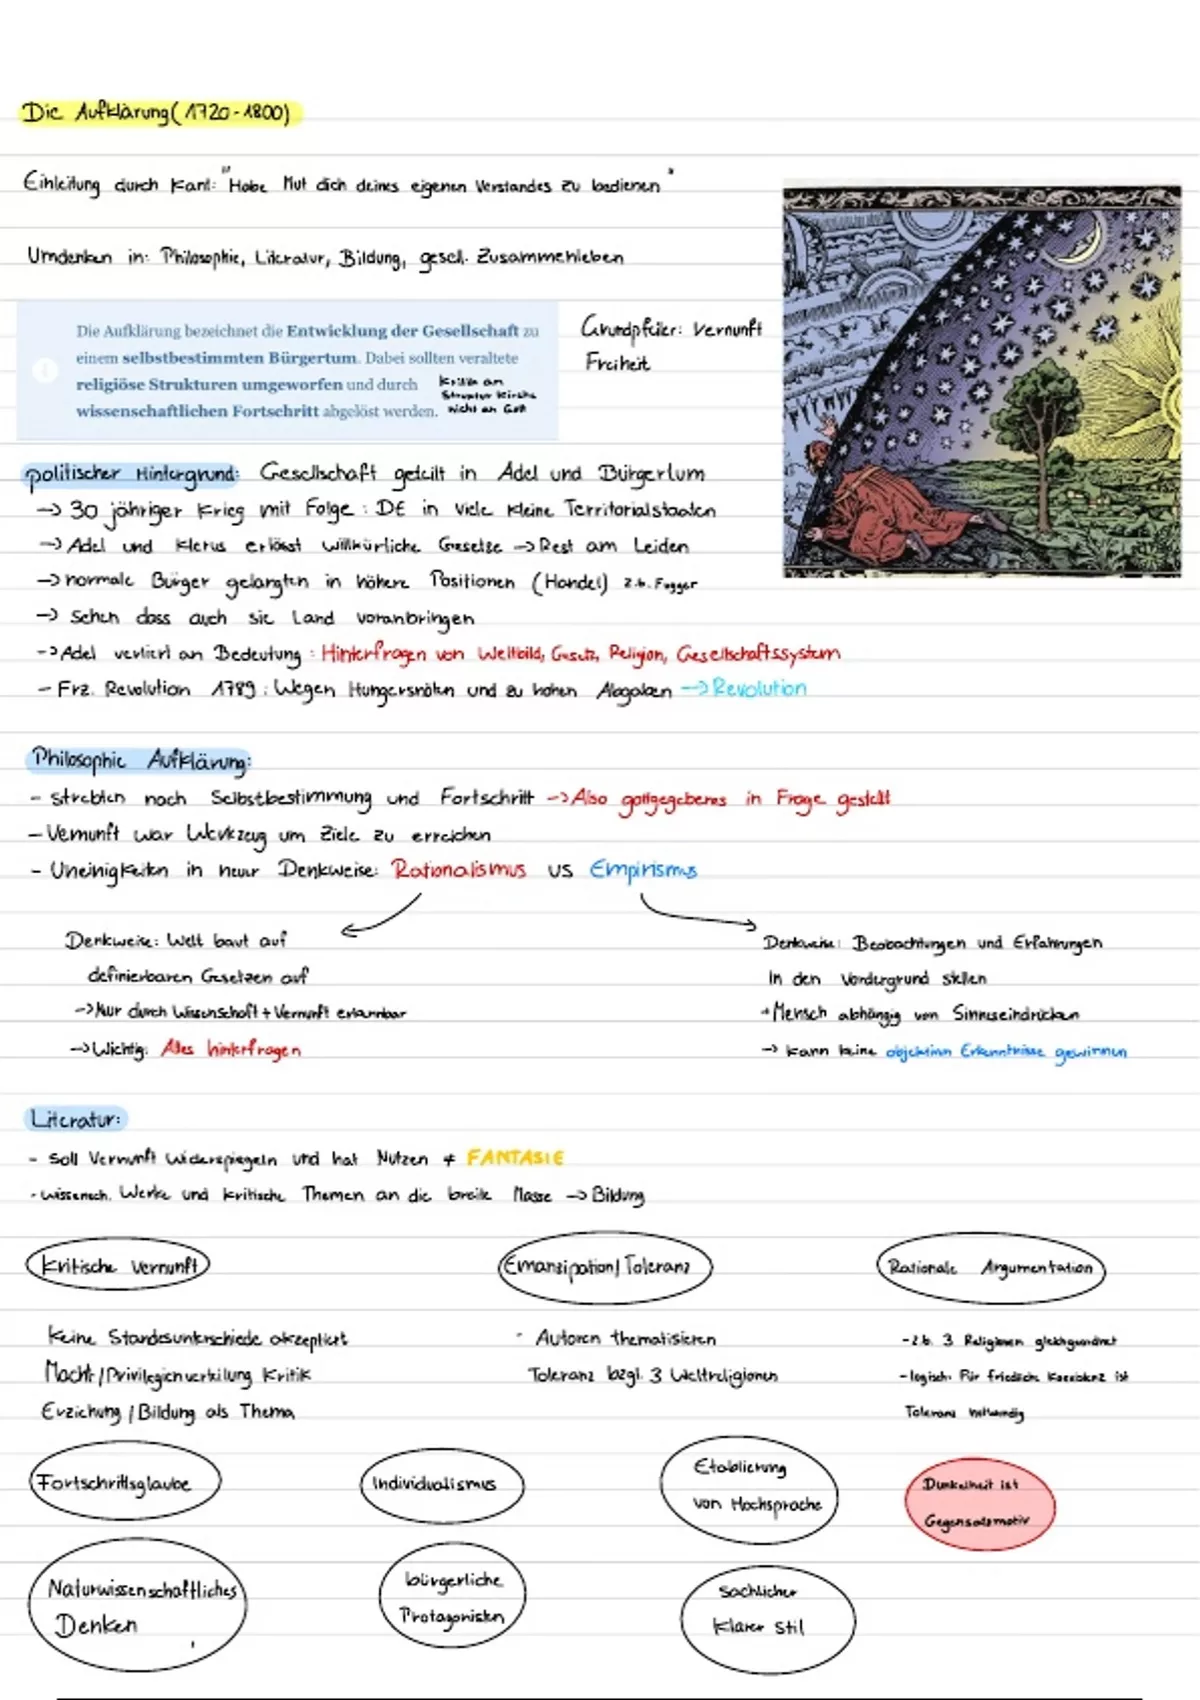 Die Aufklärung (1720-1800)
Einleitung durch Kant: "Habe Mut dich deines eigenen Verstandes zu bedienen"
Umdenken in: Philosophie, Literatur, Bildung, gesell. Zusammenleben
Die Aufklärung bezeichnet die Entwicklung der Gesellschaft zu
einem selbstbestimmten Bürgertum. Dabei sollten veraltete
religiöse Strukturen umgeworfen und durch
wissenschaftlichen Fortschritt abgelöst werden.
Kritik an
Struktur Kirche
nicht an Gott
Grundpfeiler: Vernunft
Freiheit
politischer Hintergrund: Gesellschaft geteilt in Adel und Bürgertum
→ 30 jähriger Krieg mit Folge: DE in viele kleine Territorialstaaten
→ Adel und Klerus erlässt willkürliche Gesetze → Rest am Leiden
→ normale Bürger gelangten in höhere Positionen (Handel) z.b. Fugger
→ Sehen dass auch sie Land voranbringen
→ Adel verliert an Bedeutung: Hinterfragen von Weltbild, Gesetz, Religion, Gesellschaftssystem
- Frz. Revolution 1789: Wegen Hungersnöten und zu hohen Abgaben → Revolution
Philosophie Aufklärung:
- strebten nach Selbstbestimmung und Fortschritt → Also gottgegebenes in Frage gestellt
- Vernunft war Werkzeug um Ziele zu erreichen
- Uneinigkeiten in neuer Denkweise: Rationalismus vs Empirismus
Denkweise: Welt baut auf
definierbaren Gesetzen auf
→ Nur durch Wissenschaft + Vernunft erkennbar
→ Wichtig: Alles hinterfragen
Denkweise: Beobachtungen und Erfahrungen
in den Vordergrund stellen
→ Mensch abhängig von Sinneseindrücken
→ kann keine objektiven Erkenntnisse gewinnen
Literatur:
- Soll Vernunft widerspiegeln und hat Nutzen ≠ FANTASIE
- wissensch. Werke und kritische Themen an die breite Masse → Bildung
Kritische Vernunft
Emanzipation/Toleranz
Rationale Argumentation
Keine Standesunterschiede akzeptiert
Macht/Privilegienverteilung Kritik
Erziehung/Bildung als Thema
- Autoren thematisieren
Toleranz bzgl. 3 Weltreligionen
- z.b. 3 Religionen gleichgeordnet
- logisch: Für friedliche Koexistenz ist
Toleranz notwendig
Fortschrittsglaube
Individualismus
Etablierung
von Hochsprache
Dunkelheit ist
Gegensatzmotiv
Naturwissenschaftliches
Denken
bürgerliche
Protagonisten
Sachlicher
Klarer Stil